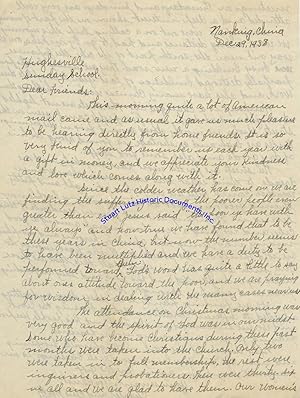 Nanking, China
Dec. 29, 1938
Hughesville
Sunday School.
Dear Friends:
This morning quite a lot of American
mail came and as usual it gave us much pleasure
to be hearing directly from home friends. It is so
very kind of you to remember us each year with
a gift in money, and we appreciate your kindness
and love which comes along with it.
Since the colder weather has come on we are
finding the suffering of the poorer people even
greater than Jesus said ye have with
us always and how true we have found that to be
these years in China, but now the number seems
to have been multiplied and we have a duty to be
performed toward God's word has quite a little to say
about ones attitude toward the poor, and we are praying
for wisdom in dealing with the many cases near us.
The attendance on Christmas morning was
very good and the spirit of God was in our midst
Some who have become Christians during these past
months were taken into the Church. Only two
were taken in to full membership, the rest were
inquirers and probationers. There were thirty six
in all and we are glad to have them. Our Women's
Stuart Lutz Historic Documents, Inc.